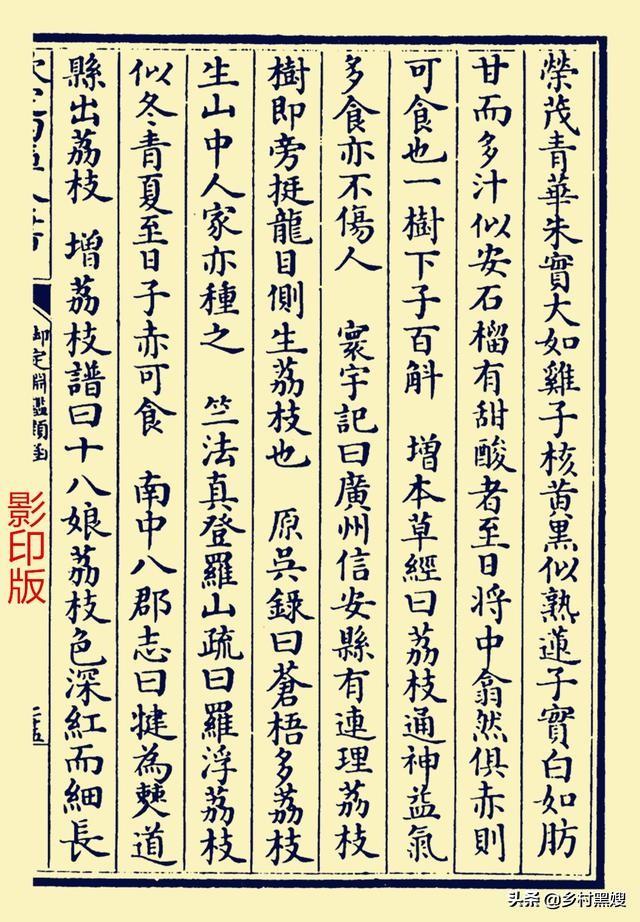 榮茂青華朱實大如雞子核黃黑似熟蓮子實白如肪
甘而多汁似安石榴有甜酸者至日將中翕然俱赤則
可食也一樹下子百斛　增本草經曰荔枝通神益氣
多食亦不傷人　寰宇記曰廣州信安縣有連理荔枝
樹即旁挺龍目側生荔枝也　原吳錄曰蒼梧多荔枝
生山中人家亦種之　竺法真登羅山疏曰羅浮荔枝
似冬青夏至日子赤可食　南中八郡志曰犍為僰道
縣出荔枝　增荔枝譜曰十八娘荔枝色深紅而細長
御定淵鑑類函
影印版
头条 @乡村黑嫂